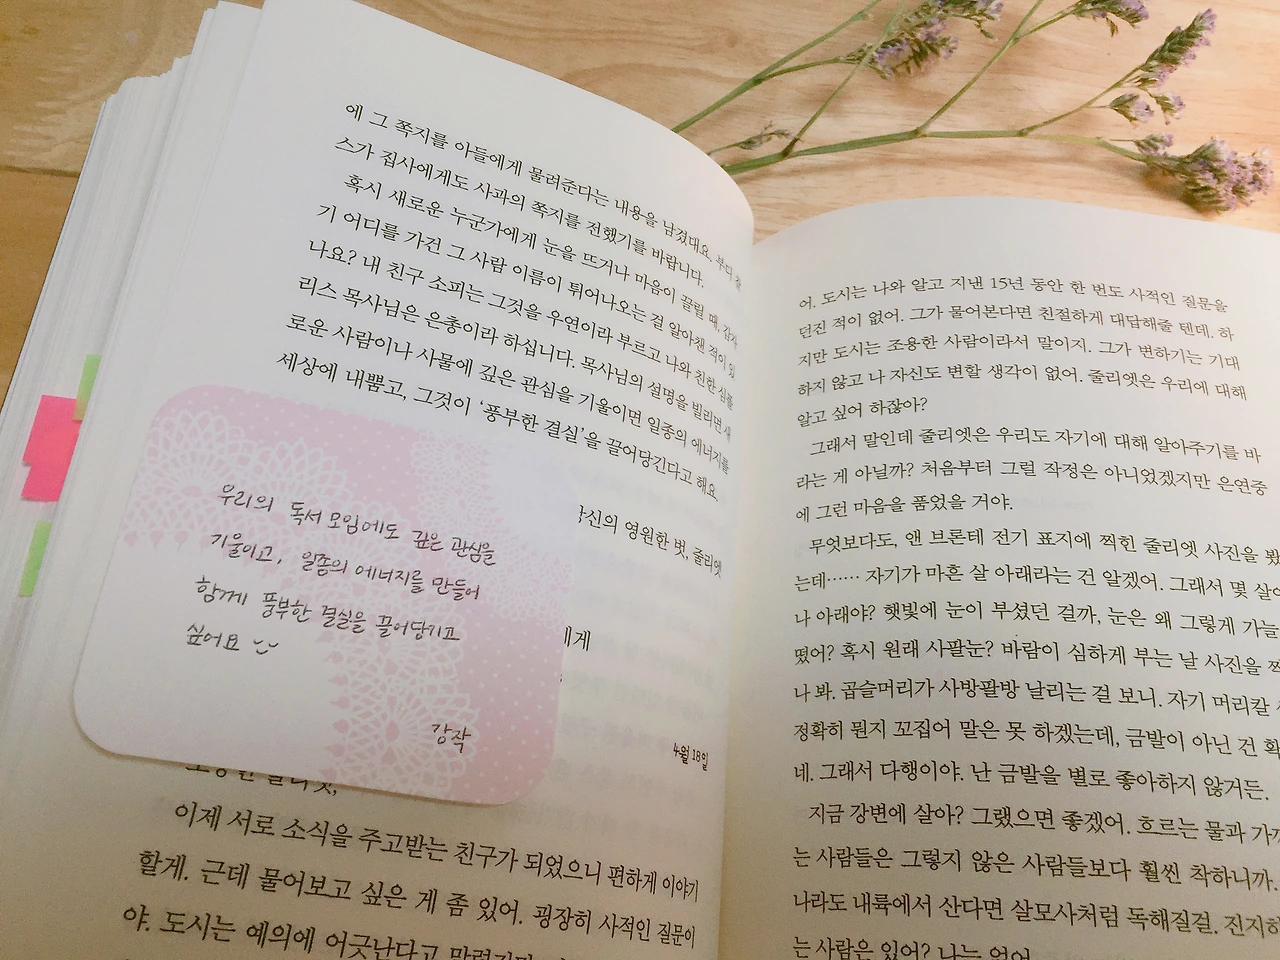 에 그 쪽지를 아들에게 물려준다는 내용을 남겼대요. 부디
스가 집사에게도 사과의 쪽지를 전했기를 바랍니다.
혹시 새로운 누군가에게 눈을 뜨거나 마음이 끌릴 때, 갑자
기 어디를 가건 그 사람 이름이 튀어나오는 걸 알아챈 적이 있
나요? 내 친구 소피는 그것을 우연이라 부르고 나와 친한 심플
리스 목사님은 은총이라 하십니다. 목사님의 설명을 빌리면 새
로운 사람이나 사물에 깊은 관심을 기울이면 일종의 에너지를
세상에 내뿜고, 그것이 ‘풍부한 결실’을 끌어당긴다고 해요.
당신의 영원한 벗, 줄리엣
우리의 독서모임에도 깊은 관심을
기울이고, 일종의 에너지를 만들어
함께 풍부한 결실을 끌어당기고
싶어요
강작
에게
4월 18일
이제 서로 소식을 주고받는 친구가 되었으니 편하게 이야기
할게. 근데 물어보고 싶은 게 좀 있어. 굉장히 사적인 질문이
야. 도시는 예의에 어긋난다고
어. 도시는 나와 알고 지낸 15년 동안 한 번도 사적인 질문을
던진 적이 없어. 그가 물어본다면 친절하게 대답해줄 텐데. 하
지만 도시는 조용한 사람이라서 말이지. 그가 변하기는 기대
하지 않고 나 자신도 변할 생각이 없어. 줄리엣은 우리에 대해
알고 싶어 하잖아?
그래서 말인데 줄리엣은 우리도 자기에 대해 알아주기를 바
라는 게 아닐까? 처음부터 그럴 작정은 아니었겠지만 은연중
에 그런 마음을 품었을 거야.
무엇보다도, 앤 브론테 전기 표지에 찍힌 줄리엣 사진을 봤
는데…… 자기가 마흔 살 아래라는 건 알겠어. 그래서 몇 살이
나 아래야? 햇빛에 눈이 부셨던 걸까, 눈은 왜 그렇게 가늘
떴어? 혹시 원래 사팔눈? 바람이 심하게 부는 날 사진을 찍
나 봐. 곱슬머리가 사방팔방 날리는 걸 보니. 자기 머리칼
정확히 뭔지 꼬집어 말은 못 하겠는데, 금발이 아닌 건 확
네. 그래서 다행이야. 난 금발을 별로 좋아하지 않거든.
지금 강변에 살아? 그랬으면 좋겠어. 흐르는 물과 가까
는 사람들은 그렇지 않은 사람들보다 훨씬 착하니까.
나라도 내륙에서 산다면 살모사처럼 독해질걸. 진지하
는 사람은 있어? 나는 없어